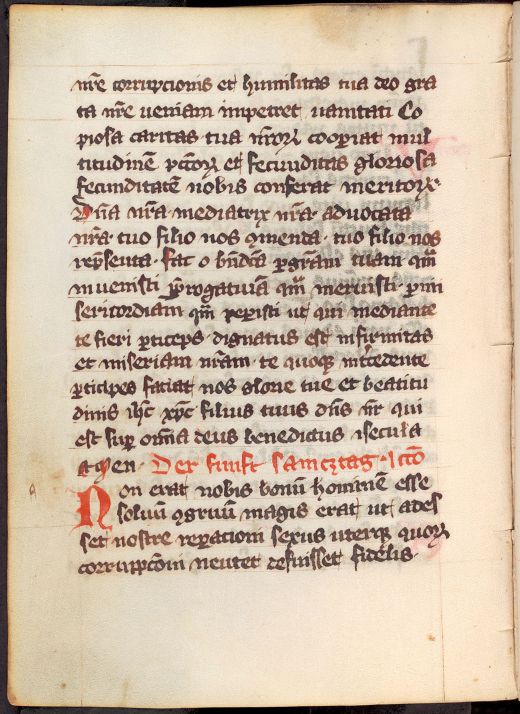 nr̄e corrupcionis et humilitas tua deo gra
ta nr̄e ueniam impetret uanitati Co
piosa caritas tua nr̄orꝝ cooperiat mul
titudinē pctōrꝝ et fecunditas gloriosa
fecunditatē nobis conferat meritorꝝ·
Dn̄a nr̄a· mediatrix nr̄a· aduocata
nr̄a· tuo filio nos ꝯmenda· tuo filio nos
rep̄senta· fac o bn̄dc̄a ꝑ gr̄am tuam qm̄
inuenisti p̄rogatiuā qm̄ meruisti· ꝑ mi
sericordiam qm̄ peperisti ut qui mediante
te fieri ꝑticeps· dignatus est infirmitas
et miseriam nr̄am· te quoqꝫ int̄cedente
ꝑticipes faciat nos glorie tue et beatitu
dinis ihc̄ xpc̄ filius tuus dn̄s nr̄ qui
est sup̄ omn̄a deus benedictus ī secula
amen· Der funft samcztag· lcc̄o
Non erat nobis bonū hominē esse
solum ꝯgruum magis erat ut ades
set nostre reꝑacioni sexus uterqꝫ quorꝝ
corrupcōni neuter defuisset fidelis·